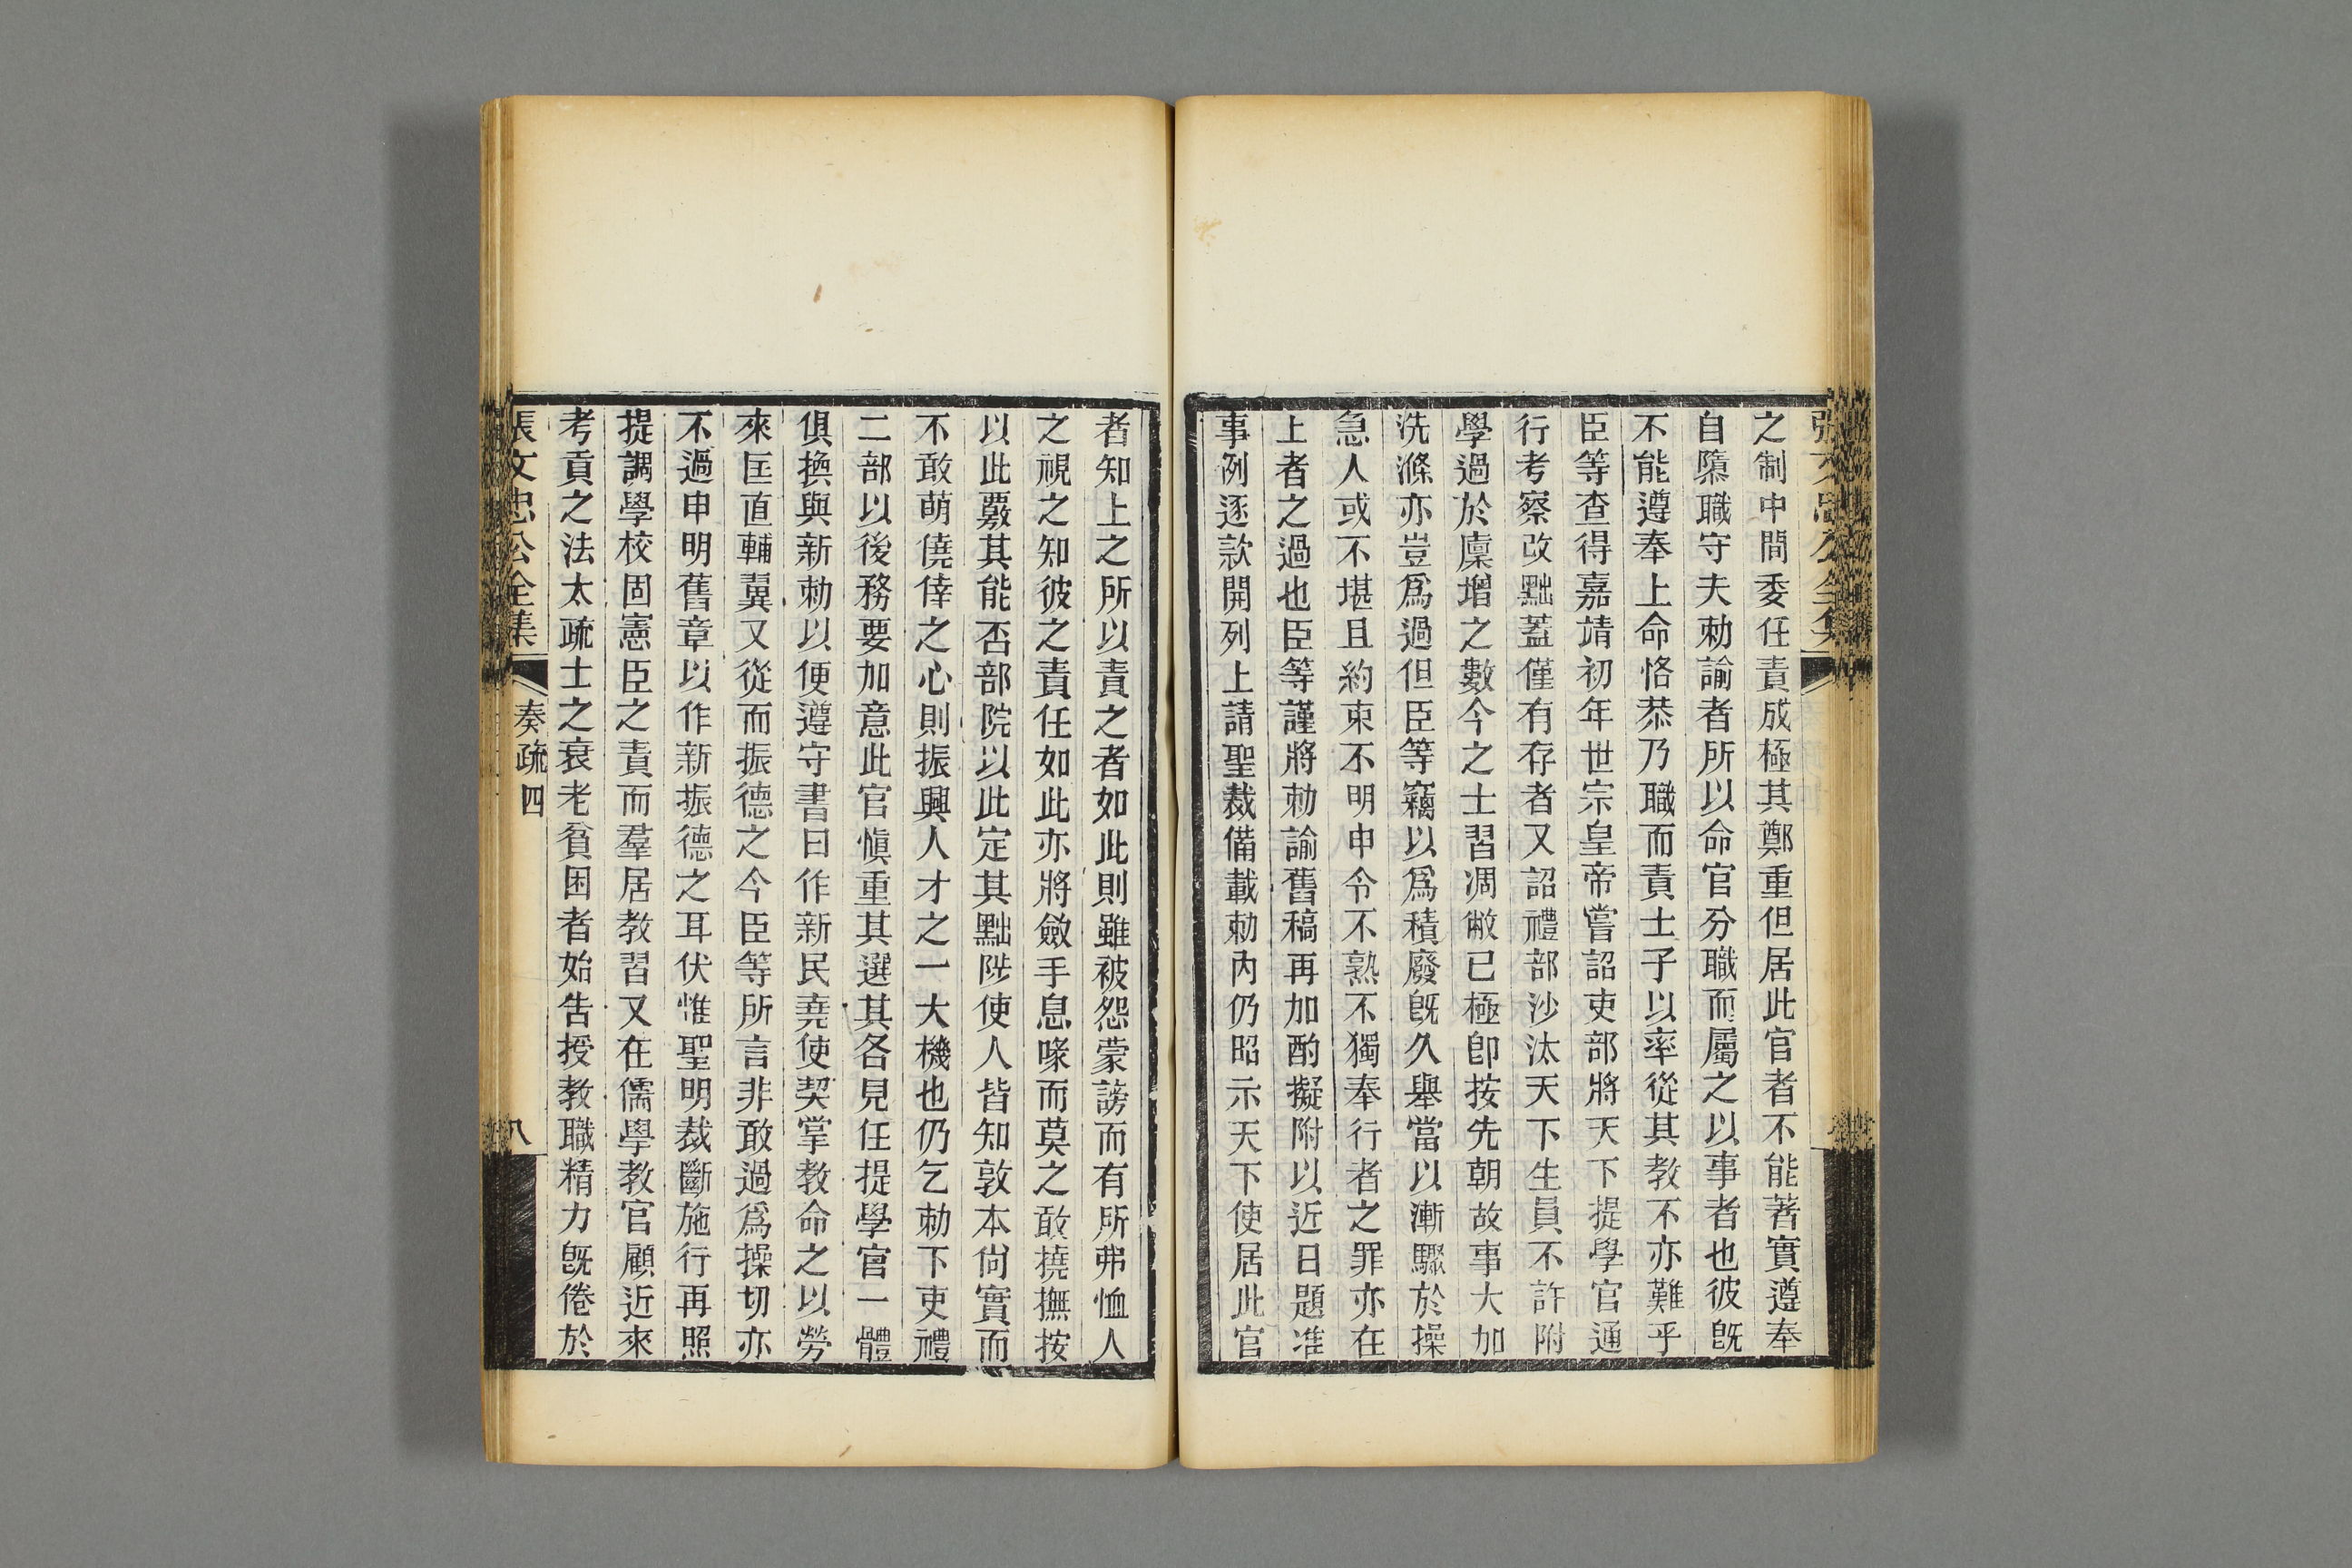 之制中間委任責成極其鄭重但居此官者不能著實遵奉
自隳職守夫勅諭者所以命官分職而屬之以事者也彼旣
不能遵奉上命恪恭乃職而責士子以率從其教不亦難乎
臣等查得嘉靖初年世宗皇帝嘗詔吏部將天下提學官通
行考察改黜蓋僅有存者又詔禮部沙汰天下生員不許附
學過於廩增之數今之士習凋敝已極卽按先朝故事大加
洗滌亦豈爲過但臣等竊以爲積廢旣久舉當以漸驟於操
急人或不堪且約束不明申令不熟不獨奉行者之罪亦在
上者之過也臣等謹將勅諭舊稿再加酌擬附以近日題准
事例逐款開列上請聖裁備載勅內仍昭示天下使居此官
者知上之所以責之者如此則雖被怨蒙謗而有所弗恤人
之視之知彼之責任如此亦將斂手息喙而莫之敢撓撫按
以此覈其能否部院以此定其黜陟使人皆知敦本尙實而
不敢萌僥倖之心則振興人才之一大機也仍乞勅下吏禮
二部以後務要加意此官愼重其選其各見任提學官一體
俱換與新勅以便遵守書曰作新民堯使契掌教命之以勞
來匡直輔翼又從而振德之今臣等所言非敢過爲操切亦
不過申明舊章以作新振德之耳伏惟聖明裁斷施行再照
提調學校固憲臣之責而羣居教習又在儒學教官顧近來
考貢之法太疏士之衰老貧困者始告授教職精力旣倦於
張文忠公全集 奏疏四 八